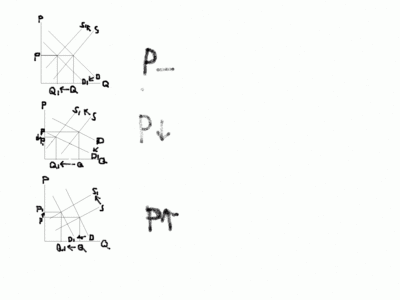 P
S₁ S
P
D₁ D
Q
Q₁ ← Q
P_
P
S₁ S
P
P₁
D
D₁
Q
Q₁ ← Q
P↓
P
S₁
S
P₁
P
D₁ ← D
Q
Q₁ ← Q
P↑